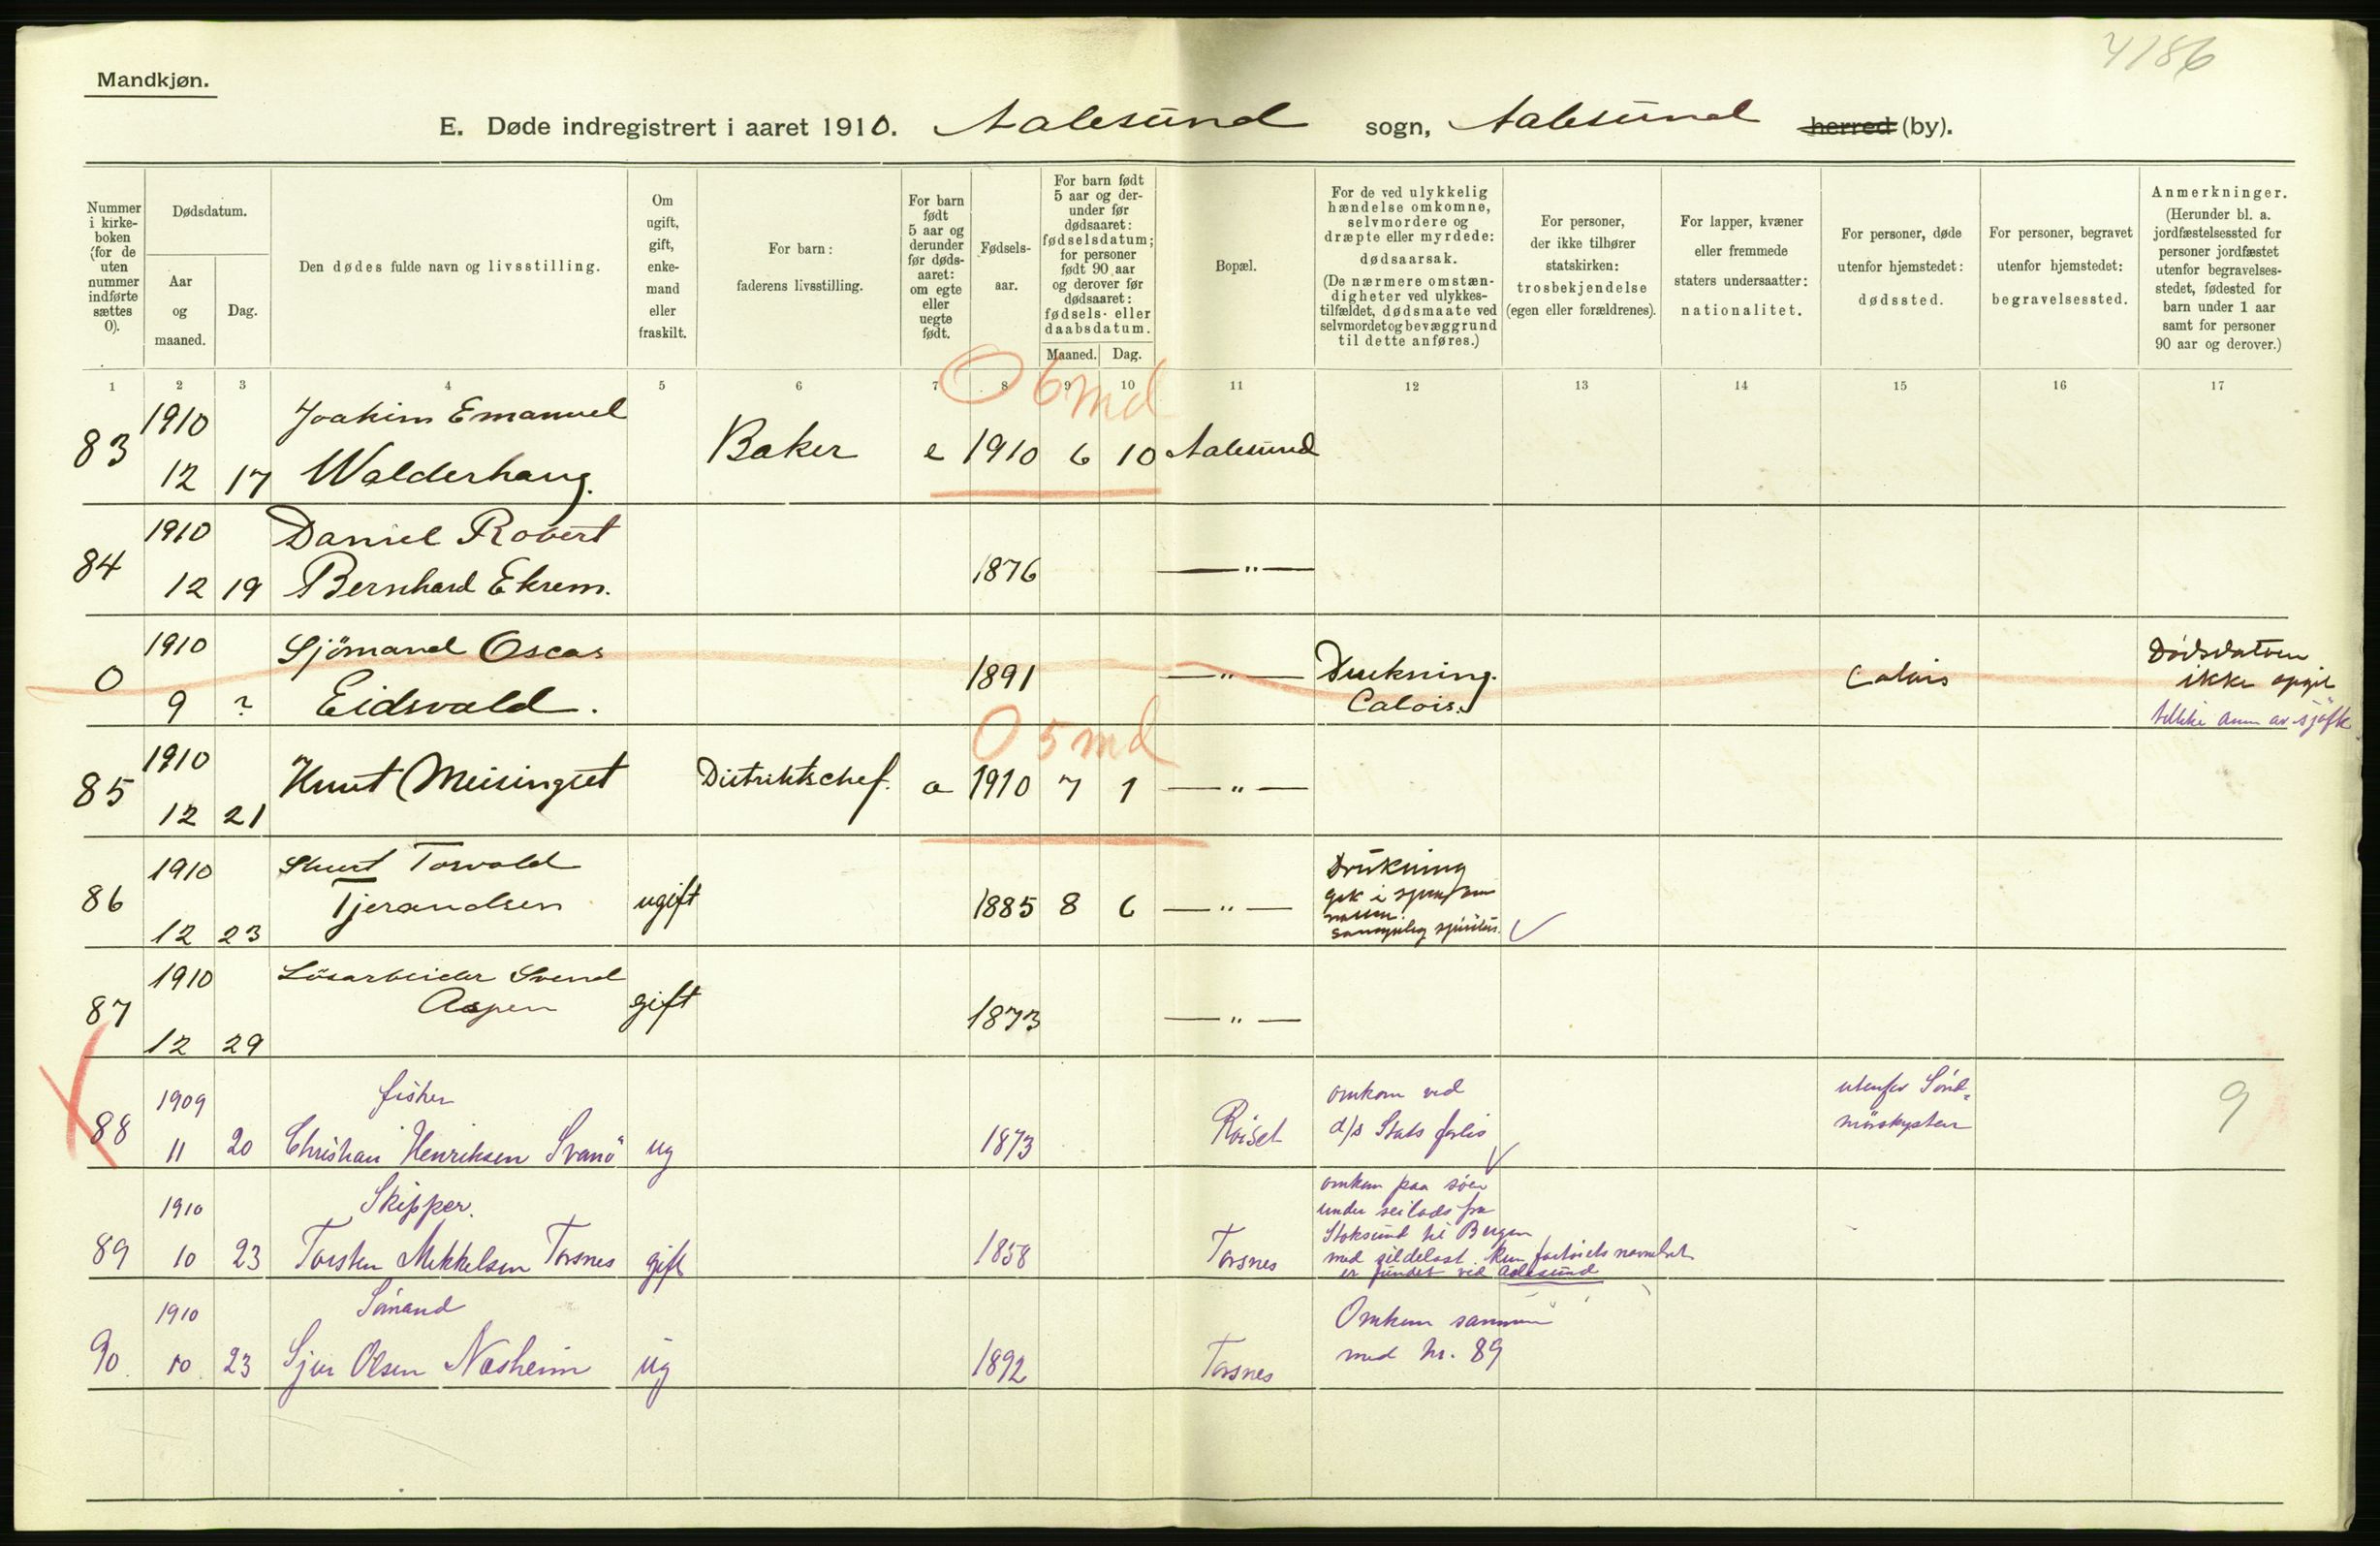 4186
Mandkjøn.
E. Døde indregistrert i aaret 1910. Aalesund sogn, Aalesund herred (by).
Nummer i kirke-boken (for de uten nummer indførte sættes 0).
Dødsdatum.
Aar og maaned.
Dag.
Den dødes fulde navn og livsstilling.
Om ugift, gift, enke-mand eller fraskilt.
For barn: faderens livsstilling.
For barn født 5 aar og derunder før døds-aaret: om egte eller uegte født.
Fødsels-aar.
For barn født 5 aar og der-under før dødsaaret: fødselsdatum; for personer født 90 aar og derover før dødsaaret: fødsels- eller daabsdatum.
Maaned. Dag.
Bopæl.
For de ved ulykkelig hændelse omkomne, selvmordere og dræpte eller myrdede: dødsaarsak.
(De nærmere omstæn-digheter ved ulykkes-tilfældet, dødsmaate ved selvmord et og bevæggrund til dette anføres.)
For personer, der ikke tilhører statskirken: trosbekjendelse (egen eller forældrenes).
For lapper, kvæner eller fremmede staters undersaatter: nationalitet.
For personer, døde utenfor hjemstedet: dødssted.
For personer, begravet utenfor hjemstedet: begravelsessted.
Anmerkninger.
(Herunder bl. a. jordfæstelsessted for personer jordfæstet utenfor begravelses-stedet, fødested for barn under 1 aar samt for personer 90 aar og derover.)
1 2 3 4 5 6 7 8 9 10 11 12 13 14 15 16 17
0 6 md
83 1910 12 17 Joakim Emanuel Walderhaug. Baker e 1910 6 10 Aalesund
84 1910 12 19 Daniel Robert Bernhard Ekrem. 1876 — " —
0 1910 9 ? Sjömand Oscar Eidsvald. 1891 — " — Drukning. Calais. Calais Dødsdatoen ikke opgit
0 5 md
85 1910 12 21 Knut Meisingset Distriktschef. e 1910 7 1 — " —
86 1910 12 23 Knut Torvald Tjerandsen ugift 1885 8 6 — " — Drukning gik i sjøen
87 1910 12 29 Lösarbeider Svend Aspen gift 1873 — " —
88 1909 11 20 fisker Christian Henriksen Svanö ug 1873 Roiset omkom ved d/s Stats forlis utenfor Sönd-mörskysten 9
89 1910 10 23 Skipper. Torsten Mikkelsen Torsnes gift 1858 Torsnes omkom paa søen under seilads fra Stoksund til Bergen med sildelast. Kun fartøiets navnebret er fundet ved Aalesund
90. 1910 10 23 Sömand Sjur Olsen Næsheim ug 1892 Torsnes Omkom sammen med nr. 89